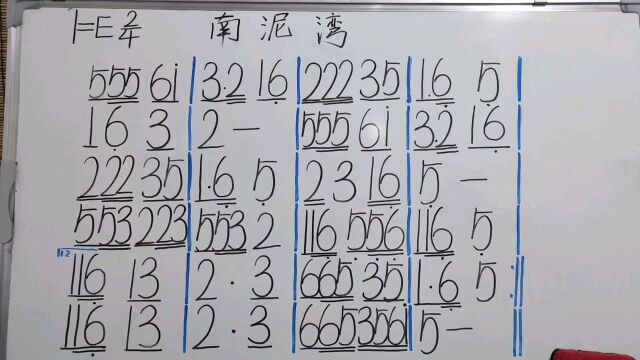 1=E 2/4 南泥湾
555 61 | 3·2 16 | 222 35 | 1·6 5 |
16 3 | 2 — | 555 61 | 3·2 16 |
222 35 | 1·6 5 | 23 16 | 5 — |
553 223 | 553 2 | 116 556 | 116 5 |
112
116 13 | 2 · 3 | 665 35 | 1·6 5 :||
116 13 | 2 · 3 | 665 3561 | 5 — ||